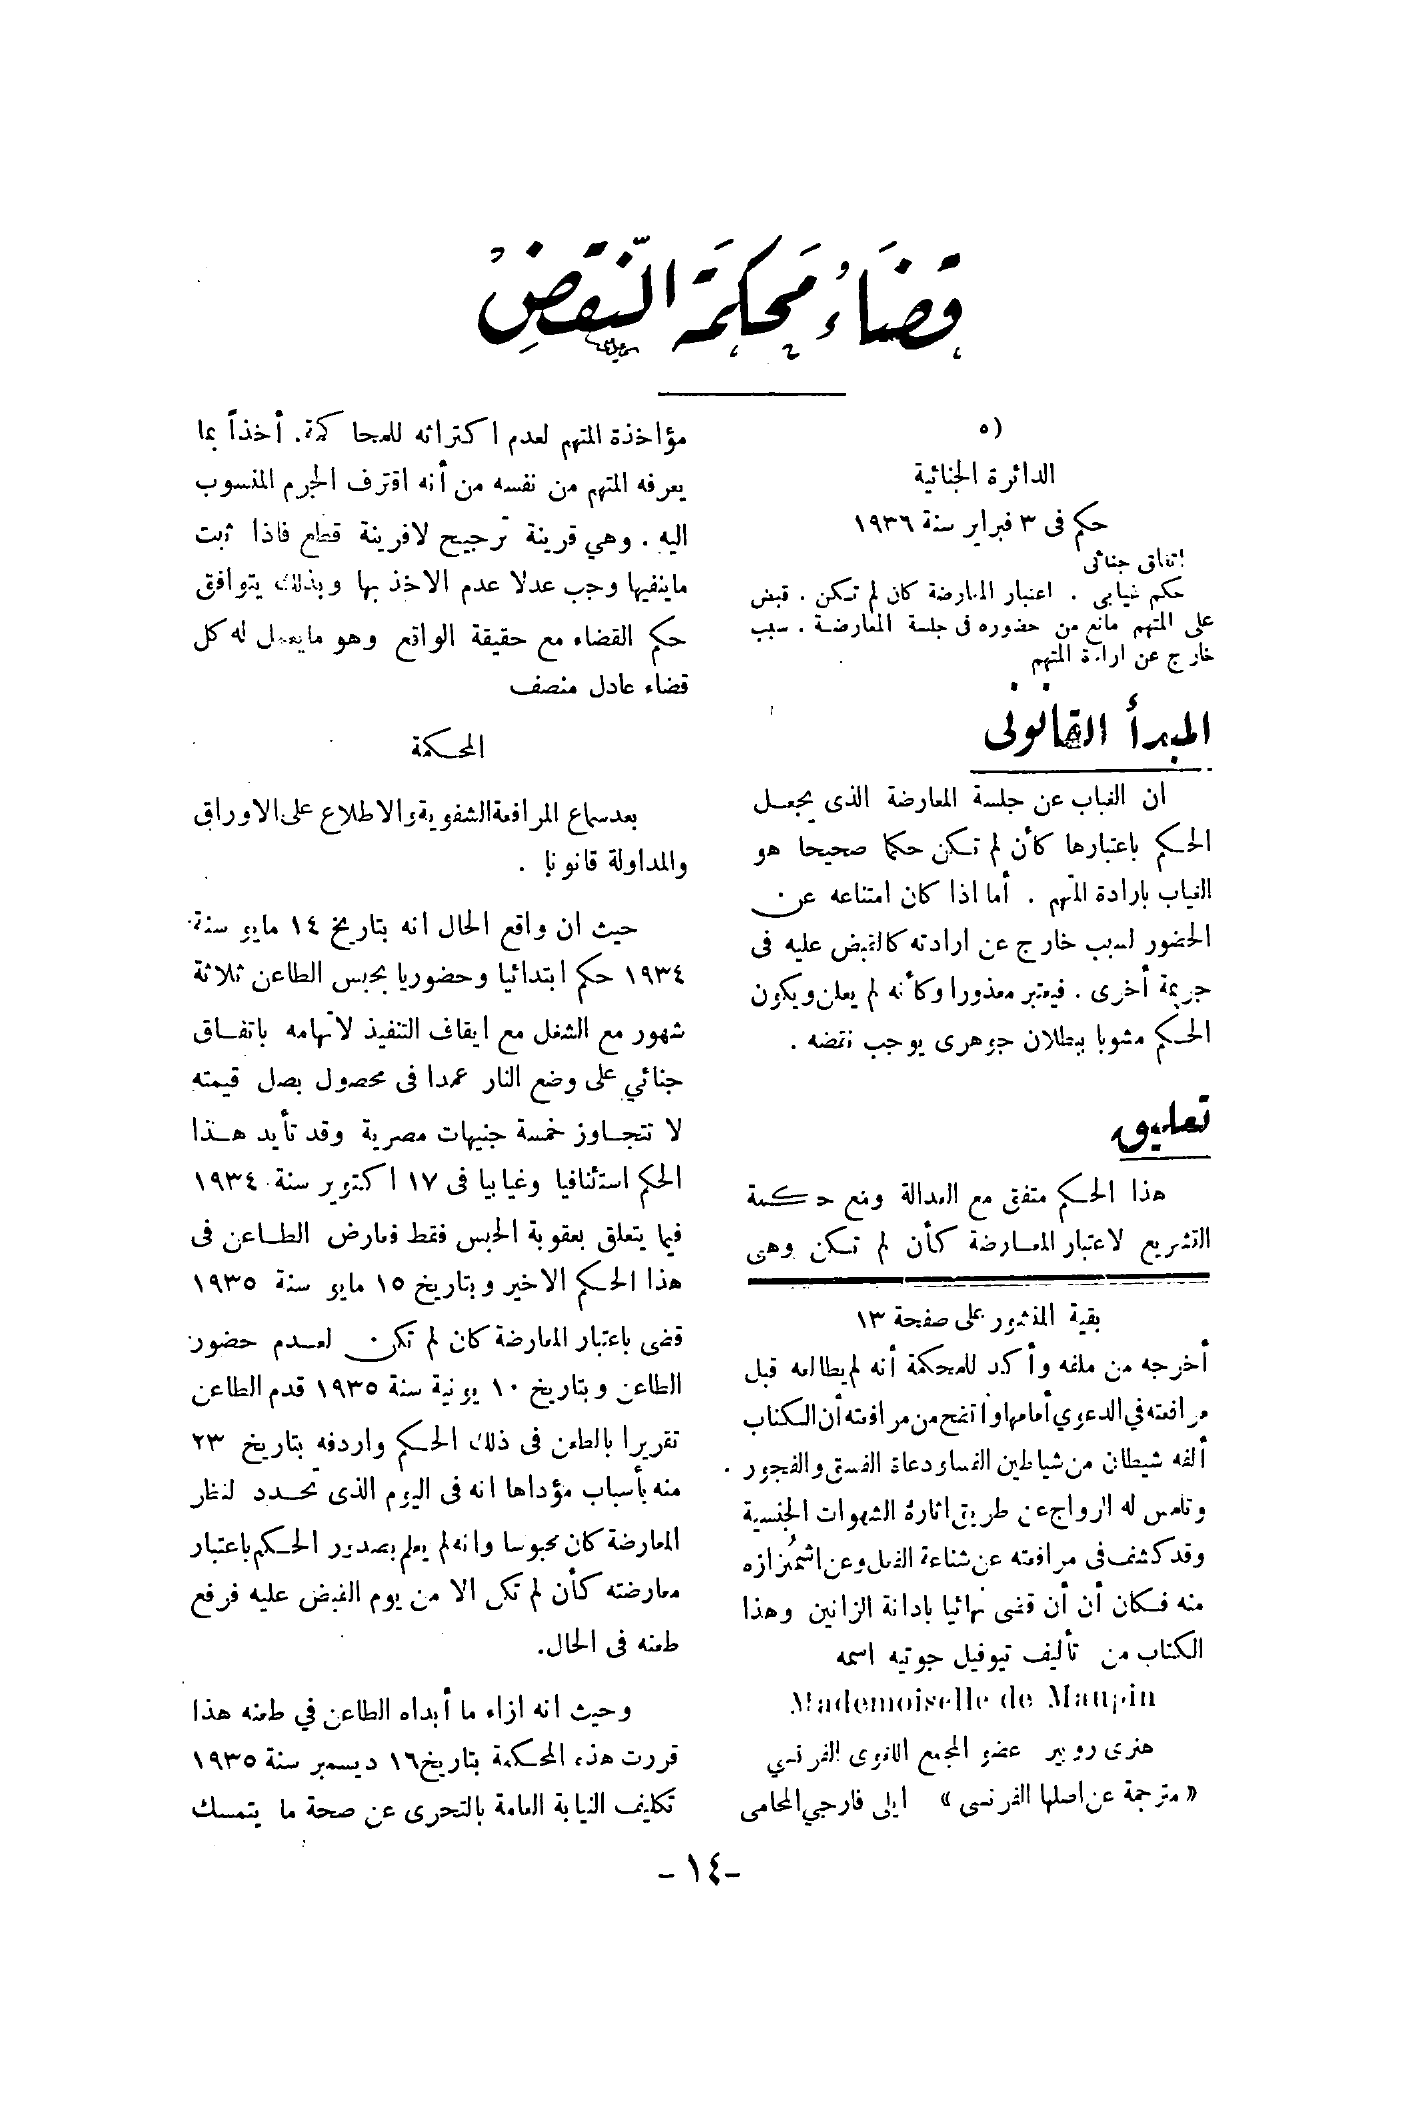 قضاء محكمة النقض
٥)
الدائرة الجنائية
حكم فى ٣ فبراير سنة ١٩٣٦
اتفاق جنائى
حكم غيابى . اعتبار المعارضة كان لم تكن . قبض
على المتهم مانع من حضوره فى جلسة المعارضة . سبب
خارج عن ارادة المتهم
المبدأ القانونى
ان الغياب عن جلسة المعارضة الذى يجعل
الحكم باعتبارها كأن لم تكن حكما صحيحا هو
الغياب بارادة المتهم . أما اذا كان امتناعه عن
الحضور لسبب خارج عن ارادته كالقبض عليه فى
جريمة أخرى . فيعتبر معذورا وكأنه لم يعلن ويكون
الحكم مشوبا ببطلان جوهرى يوجب نقضه .
تعليق
هذا الحكم متفق مع العدالة ومع حكمة
التشريع لاعتبار المعارضة كأن لم تكن وهى
مؤاخذة المتهم لعدم اكتراثه للمحاكمة. أخذاً بما
يعرفه المتهم من نفسه من أنه اقترف الجرم المنسوب
اليه . وهي قرينة ترجيح لاقرينة قطع فاذا ثبت
ماينفيها وجب عدلا عدم الاخذ بها وبذلك يتوافق
حكم القضاء مع حقيقة الواقع وهو مايعمل له كل
قضاء عادل منصف
المحكمة
بعد سماع المرافعة الشفوية والاطلاع على الاوراق
والمداولة قانونا .
حيث ان واقع الحال انه بتاريخ ١٤ مايو سنة
١٩٣٤ حكم ابتدائيا وحضوريا بحبس الطاعن ثلاثة
شهور مع الشغل مع ايقاف التنفيذ لاتهامه باتفاق
جنائي على وضع النار عمدا فى محصول بصل قيمته
لا تتجاوز خمسة جنيهات مصرية وقد تأيد هذا
الحكم استئنافيا وغيابيا فى ١٧ اكتوبر سنة ١٩٣٤
فيما يتعلق بعقوبة الحبس فقط فعارض الطاعن فى
هذا الحكم الاخير وبتاريخ ١٥ مايو سنة ١٩٣٥
قضى باعتبار المعارضة كان لم تكن لعدم حضور
الطاعن وبتاريخ ١٠ يونية سنة ١٩٣٥ قدم الطاعن
تقريرا بالطعن فى ذلك الحكم واردفه بتاريخ ٢٣
منه بأسباب مؤداها انه فى اليوم الذى تحدد لنظر
المعارضة كان محبوسا وانه لم يعلم بصدور الحكم باعتبار
معارضته كأن لم تكن الا من يوم القبض عليه فرفع
طعنه فى الحال.
وحيث انه ازاء ما أبداه الطاعن في طعنه هذا
قررت هذه المحكمة بتاريخ ١٦ ديسمبر سنة ١٩٣٥
تكليف النيابة العامة بالتحرى عن صحة ما يتمسك
بقية المنشور على صفحة ١٣
أخرجه من ملفه وأكد للمحكمة أنه لم يطالعه قبل
مرافعته في الدعوي أمامها واتضح من مرافعته أن الكتاب
ألفه شيطان من شياطين الفساد ودعاة الفسق والفجور .
وتلمس له الرواج عن طريق اثارة الشهوات الجنسية
وقد كشف فى مرافعته عن شناعة الفعل وعن اشمئزازه
منه فكان أن أن قضى نهائيا بادانة الزانين وهذا
الكتاب من تأليف تيوفيل جوتيه اسمه
Mademoiselle de Maupin
هنرى روبير عضو المجمع اللغوى الفرنسي
« مترجمة عن اصلها الفرنسى » ايلى فارجي المحامى
- ١٤ -